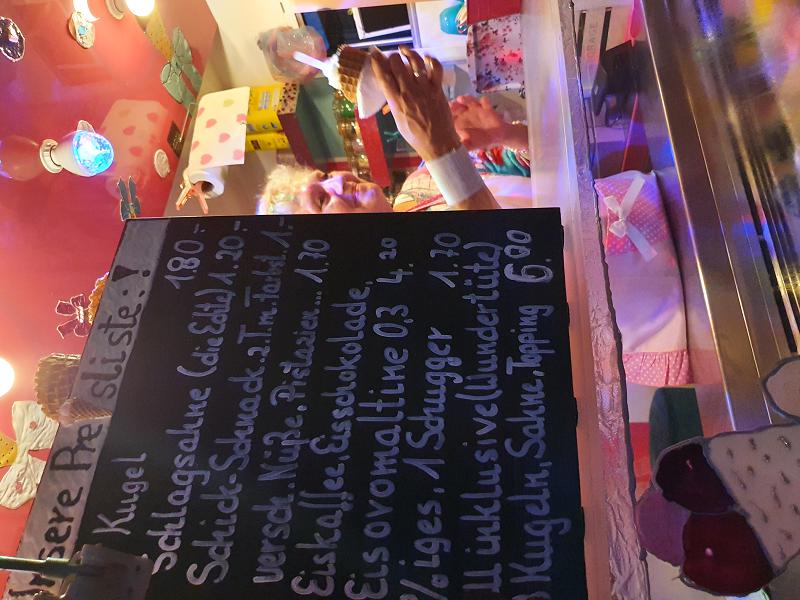 Unsere Preisliste:!
Kugel 1.80.-
Schlagsahne (die Echte) 1.20.-
Schick-Schnack z.T.m. Farbst. 1.-
versch. Nüße, Pistazien... 1.70
Eiskaffee, Eisschokolade,
Eisovomaltine 0,3 4.20
%iges, 1 Schugger 1.70
inklusive (Wundertüte)
Kugeln, Sahne, Topping 6.00